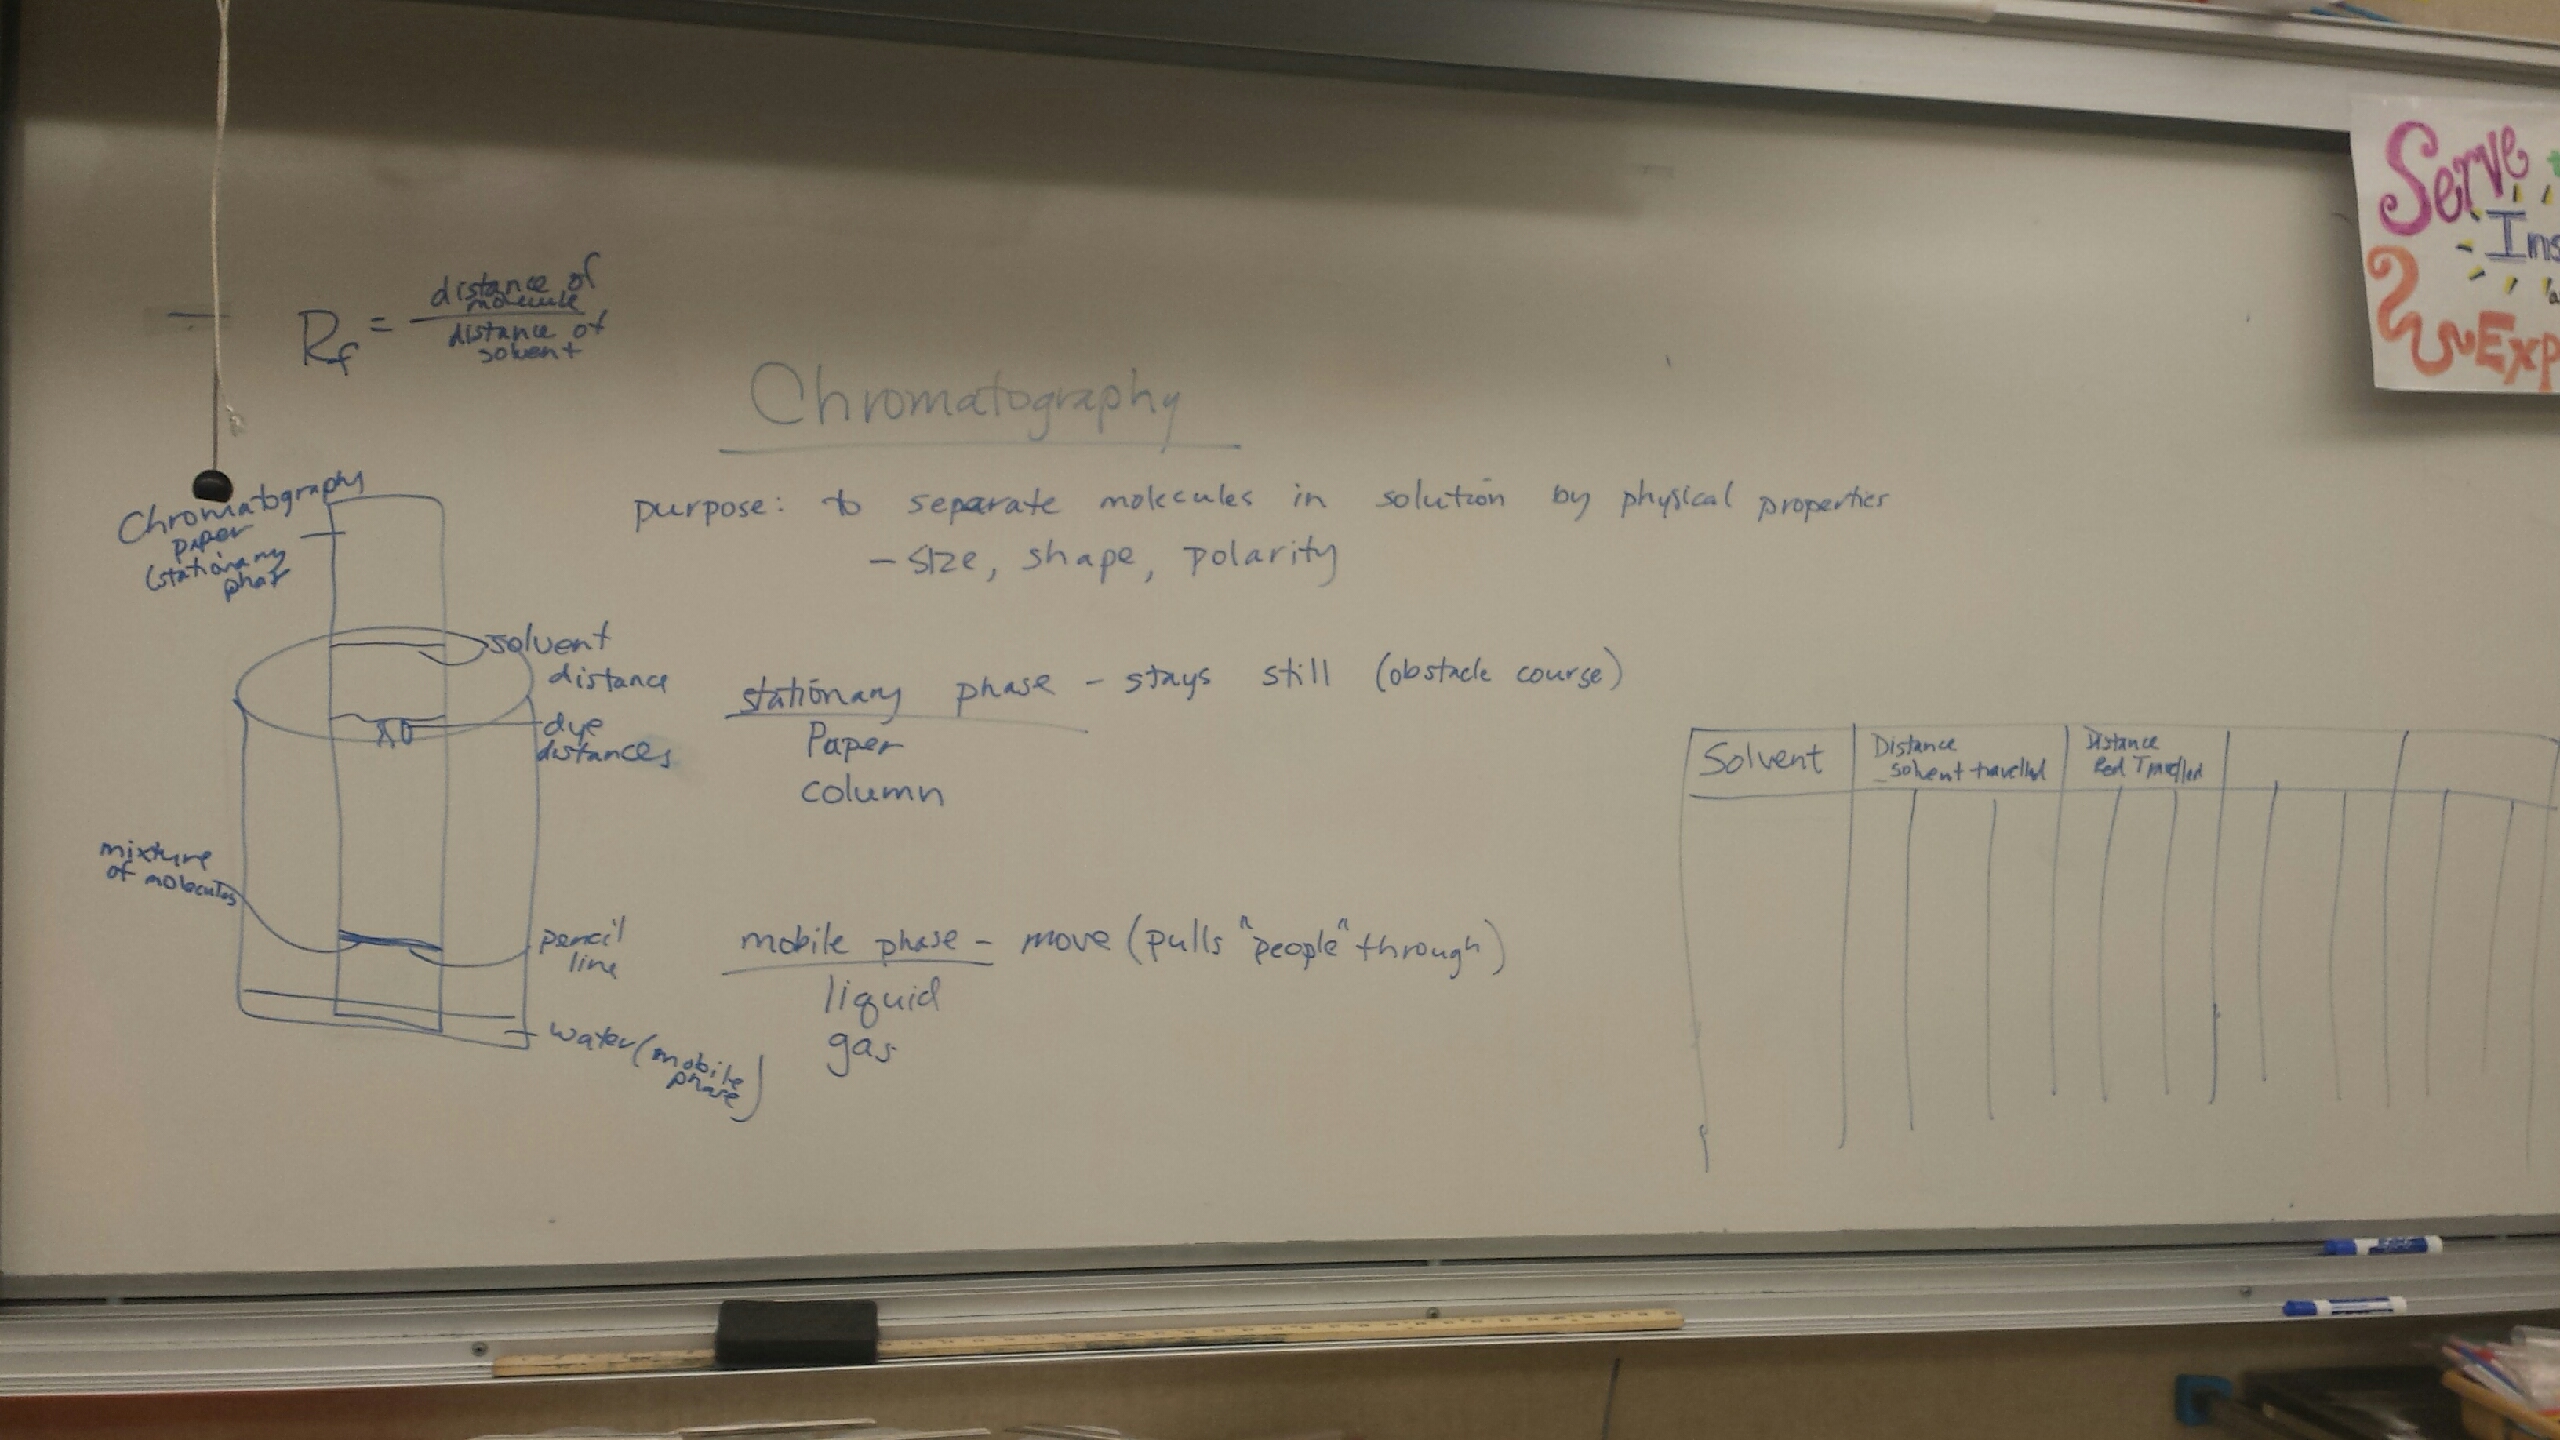 Rf = distance of
molecule
distance of
solvent
Chromatography
purpose: to separate molecules in solution by physical properties
- size, shape, polarity
Chromatography
paper
(stationary
solvent
distance
dye
distances
mixture
of molecules
pencil
line
water (mobile
phase)
stationary phase - stays still (obstacle course)
Paper
column
mobile phase - move (pulls "people" through)
liquid
gas
Solvent
Distance
solvent travelled
Distance
Red Travelled
Serve
Ins
Exp